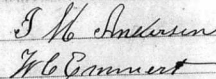 J M Anderson
W C Emmert